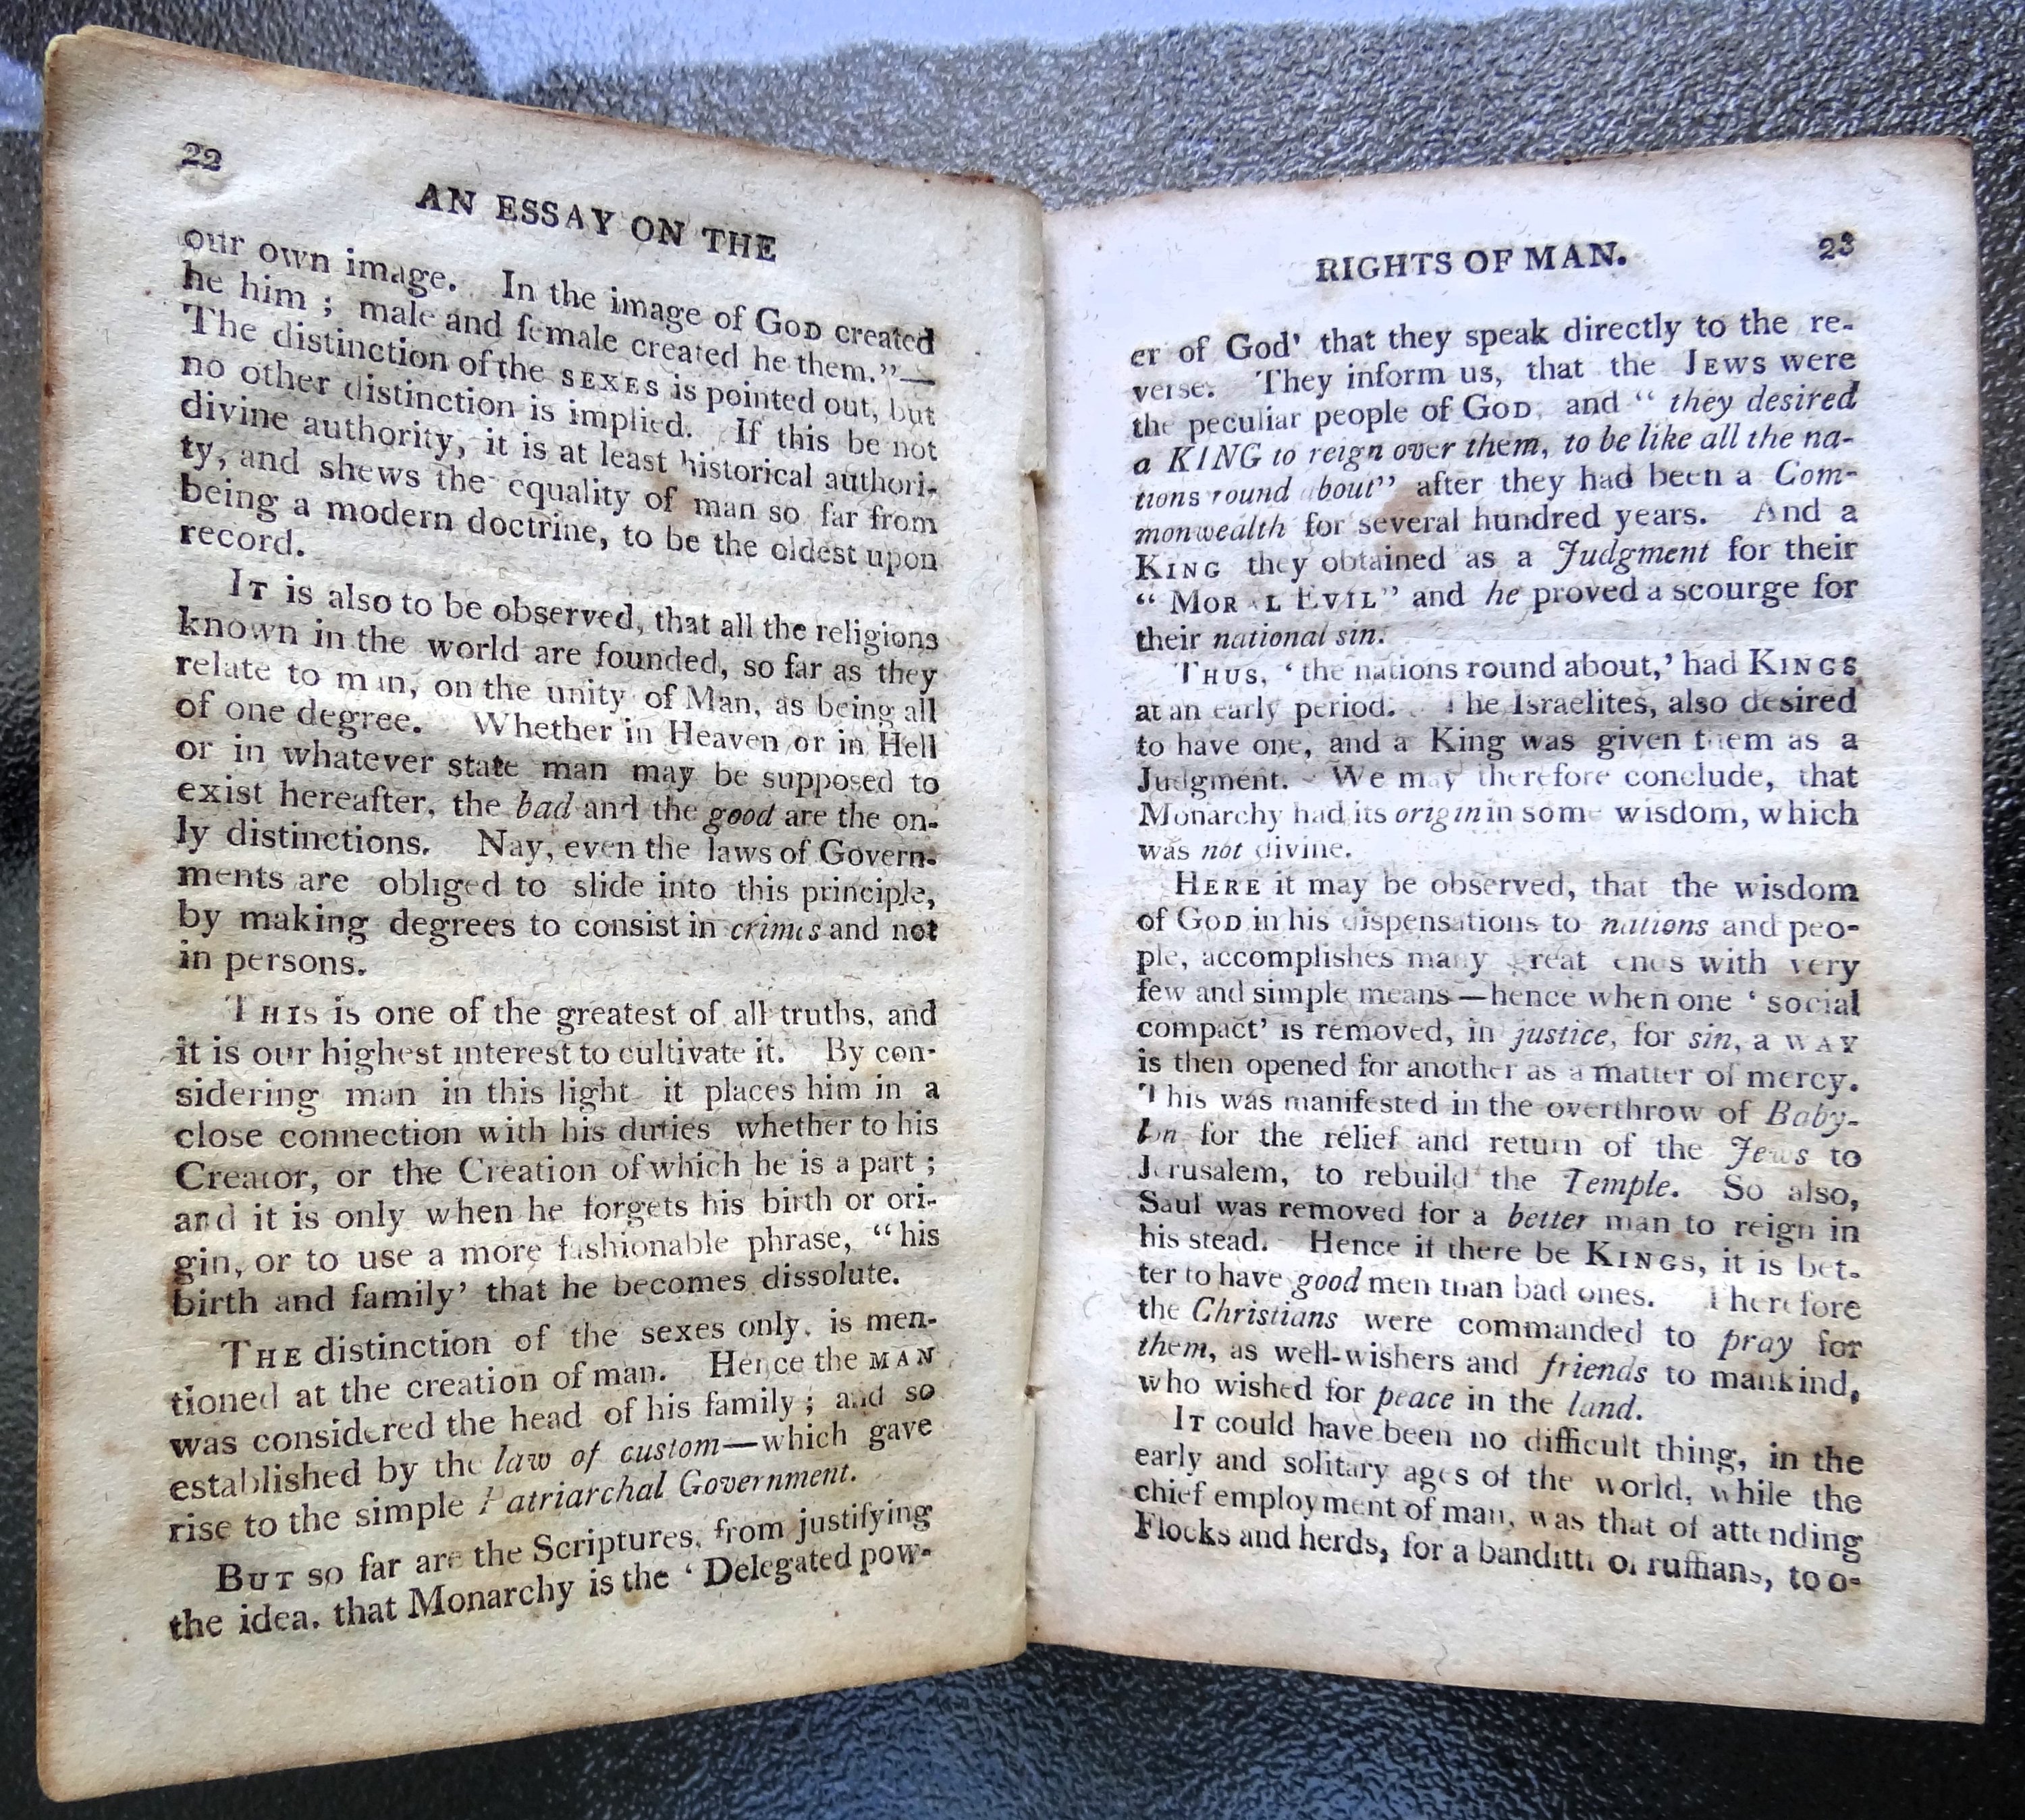 22
AN ESSAY ON THE
our own image. In the image of GOD created
he him ; male and female created he them."—
The distinction of the SEXES is pointed out, but
no other distinction is implied. If this be not
divine authority, it is at least historical authori-
ty, and shews the equality of man so far from
being a modern doctrine, to be the oldest upon
record.
IT is also to be observed, that all the religions
known in the world are founded, so far as they
relate to man, on the unity of Man, as being all
of one degree. Whether in Heaven or in Hell
or in whatever state man may be supposed to
exist hereafter, the bad and the good are the on-
ly distinctions. Nay, even the laws of Govern-
ments are obliged to slide into this principle,
by making degrees to consist in crimes and not
in persons.
THIS is one of the greatest of all truths, and
it is our highest interest to cultivate it. By con-
sidering man in this light it places him in a
close connection with his duties whether to his
Creator, or the Creation of which he is a part ;
and it is only when he forgets his birth or ori-
gin, or to use a more fashionable phrase, "his
birth and family' that he becomes dissolute.
THE distinction of the sexes only, is men-
tioned at the creation of man. Hence the MAN
was considered the head of his family ; and so
established by the law of custom—which gave
rise to the simple Patriarchal Government.
BUT so far are the Scriptures, from justifying
the idea, that Monarchy is the ‘Delegated pow-
RIGHTS OF MAN.
23
er of God' that they speak directly to the re-
verse. They inform us, that the JEWS were
the peculiar people of GOD, and " they desired
a KING to reign over them, to be like all the na-
tions round about" after they had been a Com-
monwealth for several hundred years. And a
KING they obtained as a Judgment for their
" MORAL EVIL" and he proved a scourge for
their national sin.
THUS, ‘the nations round about,' had KINGS
at an early period. The Israelites, also desired
to have one, and a King was given them as a
Judgment. We may therefore conclude, that
Monarchy had its origin in some wisdom, which
was not divine.
HERE it may be observed, that the wisdom
of GOD in his dispensations to nations and peo-
ple, accomplishes many great ends with very
few and simple means—hence when one ‘social
compact' is removed, in justice, for sin, a WAY
is then opened for another as a matter of mercy.
This was manifested in the overthrow of Baby-
lon for the relief and return of the Jews to
Jerusalem, to rebuild the Temple. So also,
Saul was removed for a better man to reign in
his stead. Hence if there be KINGS, it is bet-
ter to have good men than bad ones. Therefore
the Christians were commanded to pray for
them, as well-wishers and friends to mankind,
who wished for peace in the land.
IT could have been no difficult thing, in the
early and solitary ages of the world, while the
chief employment of man, was that of attending
Flocks and herds, for a banditti of ruffians, to o-